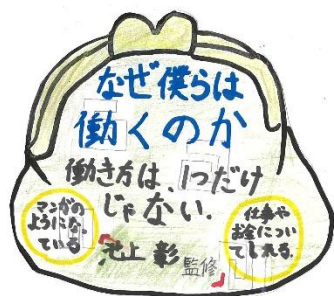 なぜ僕らは
働くのか
働き方は、1つだけ
じゃない.
マンガの
ようにな
ている
仕事や
お金につい
てしれる.
池上 彰 監修